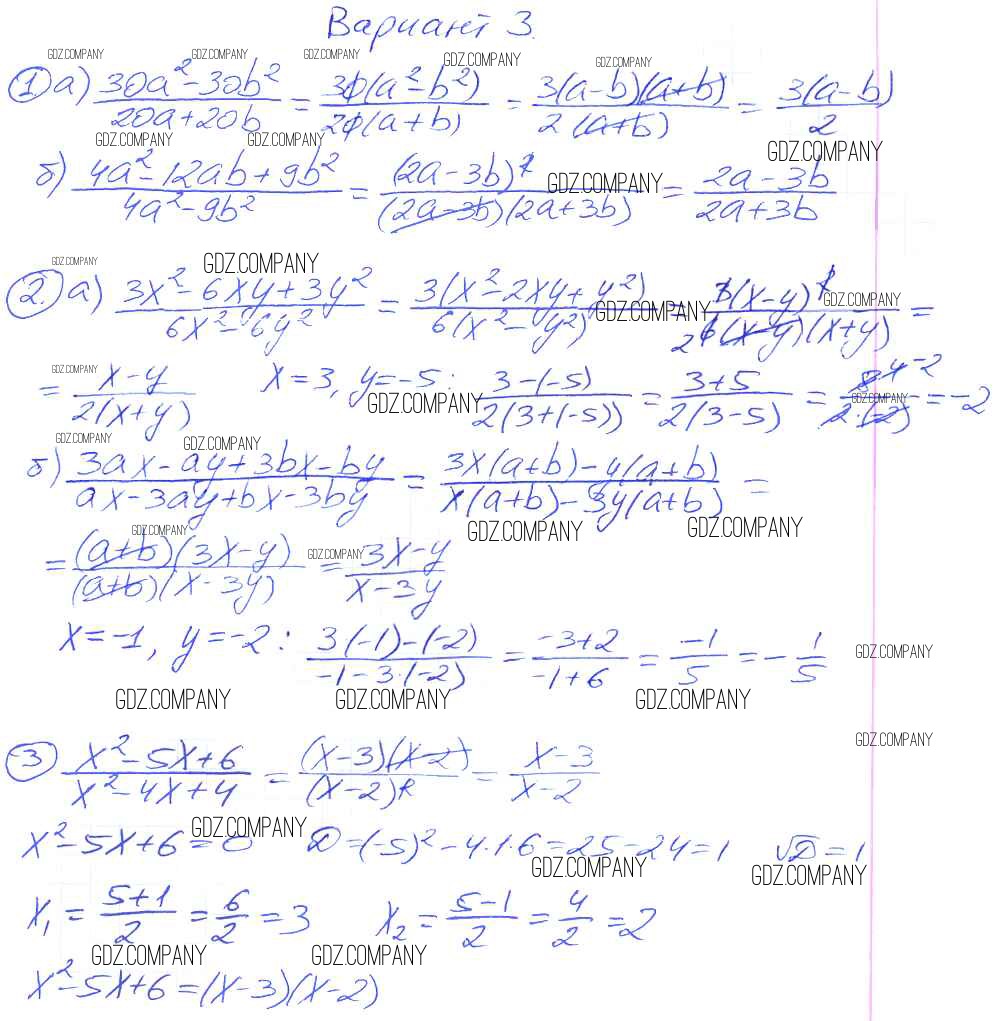 Вариант 3.
GDZ.COMPANY GDZ.COMPANY GDZ.COMPANY GDZ.COMPANY GDZ.COMPANY
① а) (30a² - 30b²)/(20a + 20b) = (30(a² - b²))/(20(a + b)) = (3(a - b)(a + b))/(2(a + b)) = (3(a - b))/2
GDZ.COMPANY GDZ.COMPANY GDZ.COMPANY
б) (4a² - 12ab + 9b²)/(4a² - 9b²) = (2a - 3b)²/((2a - 3b)(2a + 3b)) = (2a - 3b)/(2a + 3b)
GDZ.COMPANY
GDZ.COMPANY GDZ.COMPANY
② а) (3x² - 6xy + 3y²)/(6x² - 6y²) = (3(x² - 2xy + y²))/(6(x² - y²)) = (3(x - y)²)/(6(x - y)(x + y)) =
GDZ.COMPANY GDZ.COMPANY
= (x - y)/(2(x + y)) x = 3, y = -5: (3 - (-5))/(2(3 + (-5))) = (3 + 5)/(2(3 - 5)) = 8/(2·(-2)) = -2
GDZ.COMPANY GDZ.COMPANY GDZ.COMPANY
GDZ.COMPANY GDZ.COMPANY
б) (3ax - ay + 3bx - by)/(ax - 3ay + bx - 3by) = (3x(a + b) - y(a + b))/(x(a + b) - 3y(a + b)) =
GDZ.COMPANY GDZ.COMPANY
GDZ.COMPANY GDZ.COMPANY
= ((a + b)(3x - y))/((a + b)(x - 3y)) = (3x - y)/(x - 3y)
x = -1, y = -2: (3(-1) - (-2))/(-1 - 3·(-2)) = (-3 + 2)/(-1 + 6) = -1/5 = -1/5
GDZ.COMPANY
GDZ.COMPANY GDZ.COMPANY GDZ.COMPANY
GDZ.COMPANY
③ (x² - 5x + 6)/(x² - 4x + 4) = ((x - 3)(x - 2))/(x - 2)² = (x - 3)/(x - 2)
GDZ.COMPANY
x² - 5x + 6 = 0 D = (-5)² - 4·1·6 = 25 - 24 = 1 √D = 1
GDZ.COMPANY GDZ.COMPANY
x₁ = (5 + 1)/2 = 6/2 = 3 x₂ = (5 - 1)/2 = 4/2 = 2
GDZ.COMPANY GDZ.COMPANY
x² - 5x + 6 = (x - 3)(x - 2)